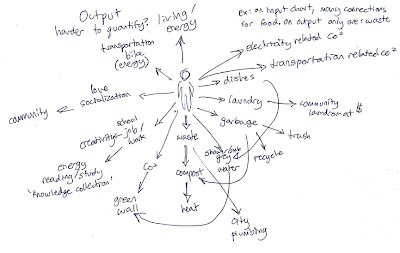 Output
harder to quantify?
living/
energy
ex: on input chart, many connections
for food. on output only are: waste
transportation
bike
(energy)
electricity related CO²
transportation related CO²
dishes
love
socialization
community
laundry
community
laundromat $
garbage
trash
recycle
school
creativity - job/
work
energy
reading/study
"knowledge collection"
CO²
green
wall
waste
compost
heat
grey
water
city
plumbing